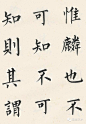 惟麟也不
可知不可
知則其謂